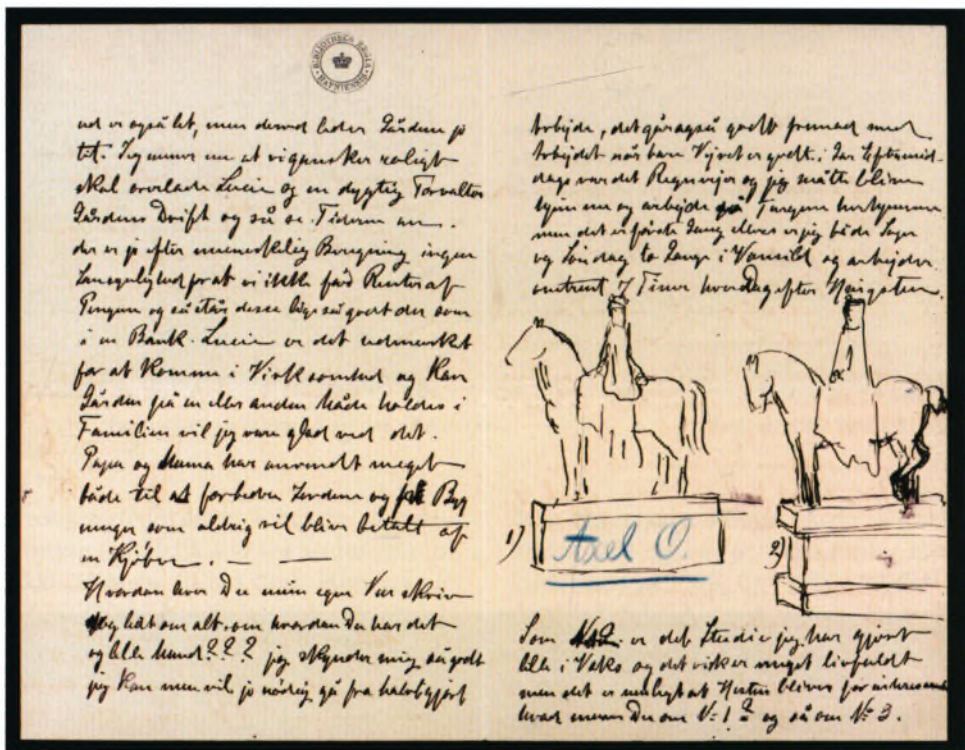 BIBLIOTHECA REGIA HAFNIENSIS
ud er også let, men derved lader Gården jo
tit. Jeg mener nu at vi ganske roligt
skal overlade Lucie og en dygtig Forvalter
Gårdens Drift og så se Tiderne an.
der er jo efter menneskelig Beregning ingen
for at vi ikke få Renter af
Pengene og så står desse ligeså godt der som
i en Bank. Lucie er det udmærket
for at komme i Virksomhed og kan
Gården på en eller anden Måde holdes i
Familien vil jeg være glad ved det.
Papa og Mama har anvendt meget
både til at forbedre Jordene og Byg
ninger som aldrig vil blive betalt af
en Kjøber. — —
Hvordan lever Du min egen Ven skriv
lidt om alt, om hvordan Du har det
og lille Mand??? jeg skynder mig så godt
jeg kan men vil jo nødig gå fra halvtgjort
Arbejde, det går også godt fremad med
Arbejdet når bare Vejret er godt, i Går Eftermid-
dags var det Regnvejr og jeg måtte blive
hjemme og arbejde på
men det er første Gang ellers er jeg både
og Søndag to Gange i og arbejder
omtrent 7 Timer hver Dag efter
1)
Axel O.
2)
Som er det Studie jeg har gjort
lille i Voks og det virker meget livfuldt
men det er muligt at Hesten bliver for
hvad mener Du om N: 1? og så om N: 3.